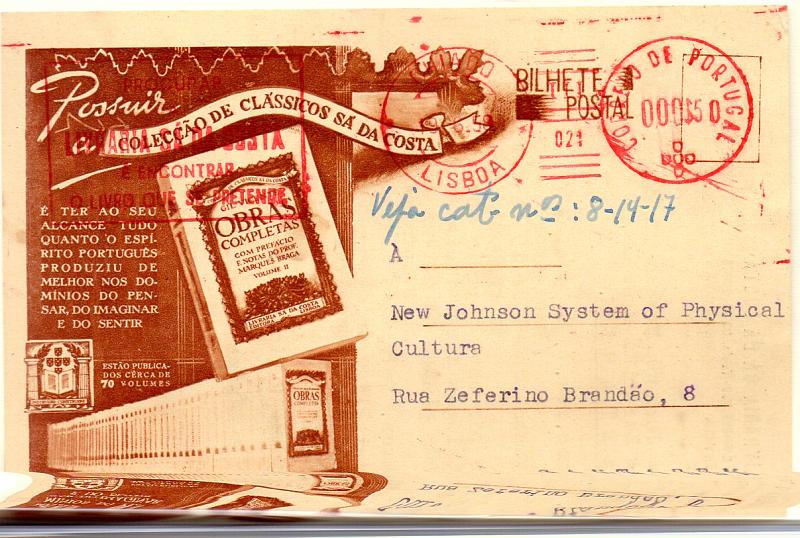 Possuir
a
COLECÇÃO DE CLÁSSICOS SÁ DA COSTA
É TER AO SEU
ALCANCE TUDO
QUANTO O ESPÍ-
RITO PORTUGUÊS
PRODUZIU DE
MELHOR NOS DO-
MÍNIOS DO PEN-
SAR, DO IMAGINAR
E DO SENTIR
ESTÃO PUBLICA-
DOS CÊRCA DE
70 VOLUMES
PROCURAR
LIVRARIA SÁ DA COSTA
É ENCONTRAR
O LIVRO QUE SE PRETENDE
OBRAS
COMPLETAS
COM PREFÁCIO
E NOTAS DO PROF.
MARQUES BRAGA
VOLUME II
LIVRARIA SÁ DA COSTA
OBRAS
COMPLETAS
LISBOA
BILHETE
POSTAL
021
CORREIO DE PORTUGAL
000$50
Veja cat. nos: 8-14-17
À
New Johnson System of Physical
Cultura
Rua Zeferino Brandão, 8